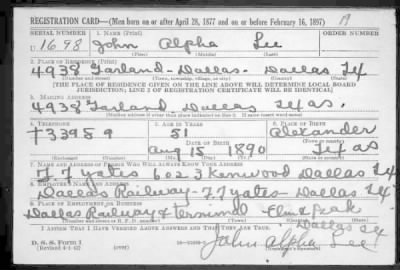 REGISTRATION CARD—(Men born on or after April 28, 1877 and on or before February 16, 1897)
SERIAL NUMBER 1. NAME (Print) ORDER NUMBER
U 1698 John Alpha Lee
(First) (Middle) (Last)
2. PLACE OF RESIDENCE (Print)
4938 Garland - Dallas - Dallas Tex
(Number and street) (Town, township, village, or city) (County) (State)
[THE PLACE OF RESIDENCE GIVEN ON THE LINE ABOVE WILL DETERMINE LOCAL BOARD
JURISDICTION; LINE 2 OF REGISTRATION CERTIFICATE WILL BE IDENTICAL]
3. MAILING ADDRESS
4938 Garland Dallas Texas.
[Mailing address if other than place indicated on line 2. If same insert word same]
4. TELEPHONE 5. AGE IN YEARS 6. PLACE OF BIRTH
T33959 51 Alexander
DATE OF BIRTH
Aug 15 1890 Texas
(Exchange) (Number) (Mo.) (Day) (Yr.) (State or country)
7. NAME AND ADDRESS OF PERSON WHO WILL ALWAYS KNOW YOUR ADDRESS
F. F Yates 6023 Kenwood Dallas Tex
8. EMPLOYER'S NAME AND ADDRESS
Dallas Railway - F. F Yates - Dallas Tex
9. PLACE OF EMPLOYMENT OR BUSINESS
Dallas Railway & Terminal Elm & Peak
Dallas Tex
(Number and street or R. F. D. number) (Town) (County) (State)
I AFFIRM THAT I HAVE VERIFIED ABOVE ANSWERS AND THAT THEY ARE TRUE.
D. S. S. Form 1
(Revised 4-1-42) (over)
John Alpha Lee